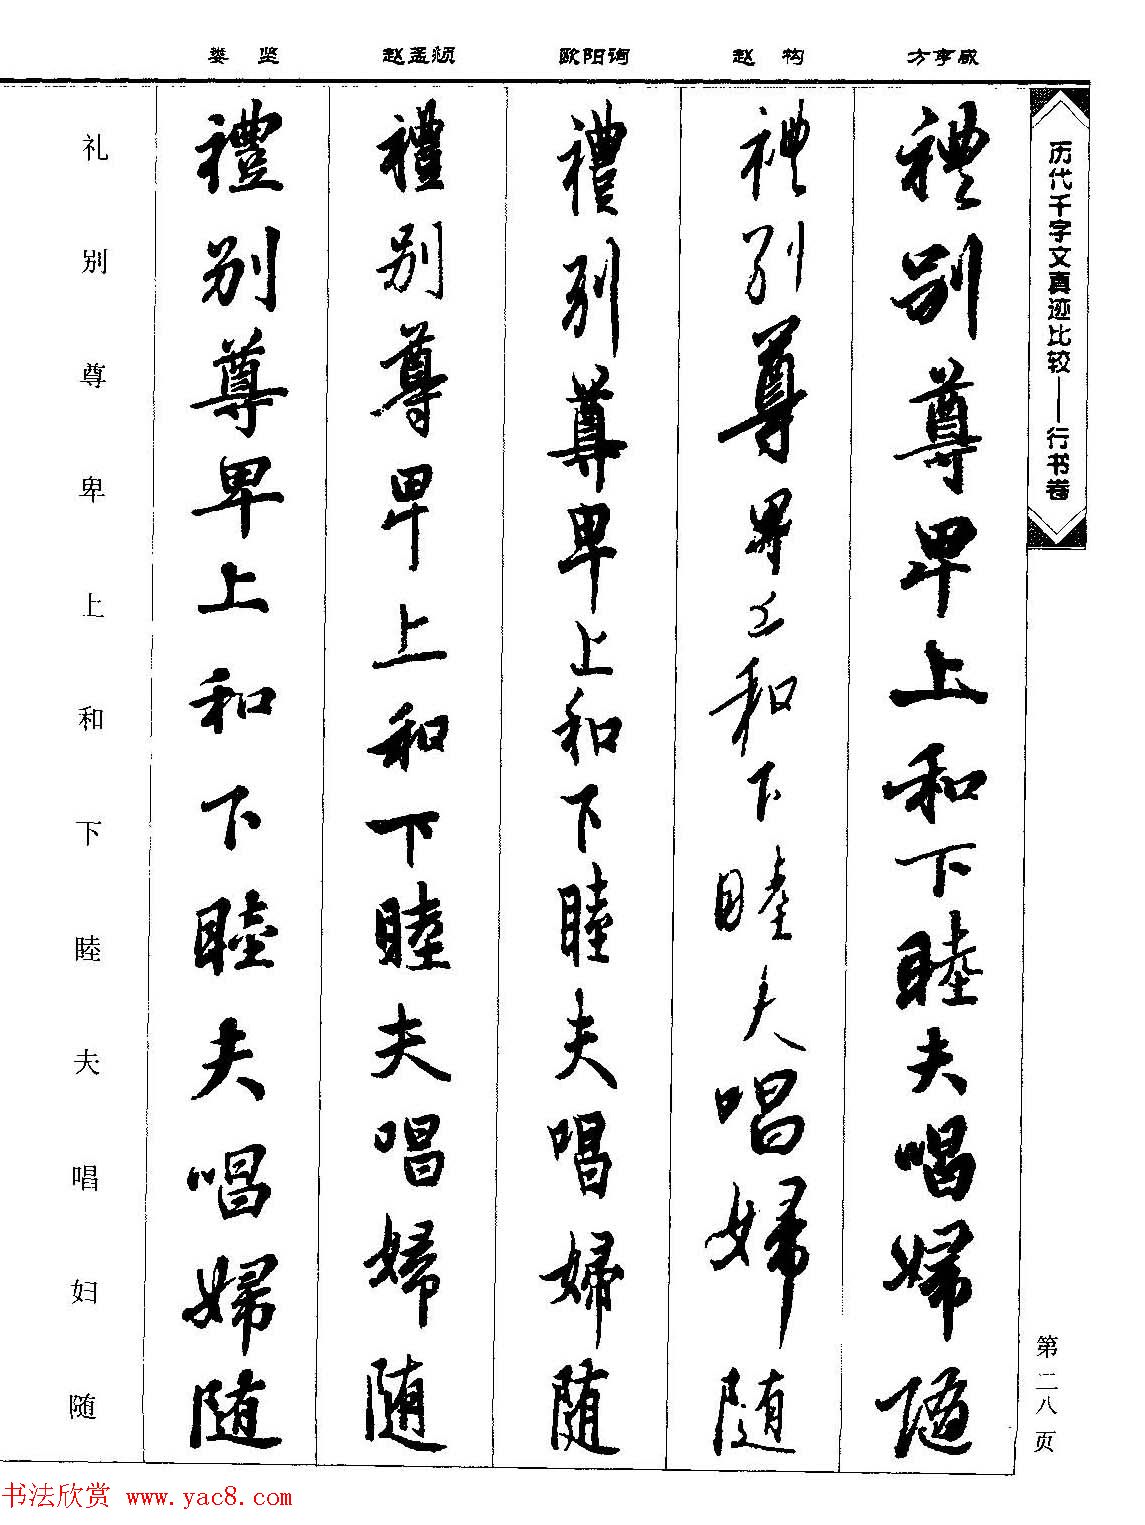 娄坚 赵孟頫 欧阳询 赵构 方亨咸
历代千字文真迹比较——行书卷
禮别尊卑上和下睦夫唱婦随
禮别尊卑上和下睦夫唱婦随
禮别尊卑上和下睦夫唱婦随
禮别尊卑上和下睦夫唱婦随
禮别尊卑上和下睦夫唱婦随
礼别尊卑上和下睦夫唱妇随
第二八页
书法欣赏 www.yac8.com